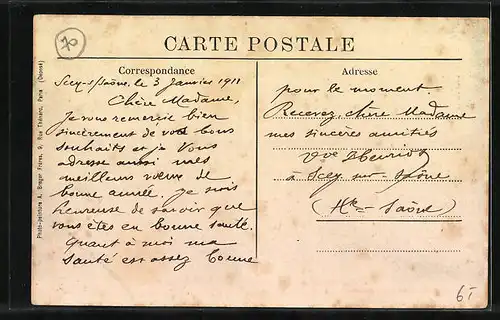 70
CARTE POSTALE
Correspondance
Scey-s/Saône, le 3 Janvier 1911
Chère Madame,
Je vous remercie bien
sincèrement de vos bons
souhaits et je vous
adresse aussi mes
meilleurs vœux de
bonne année. Je suis
heureuse de savoir que
vous êtes en bonne santé.
Quant à moi ma
santé est assez bonne
Adresse
pour le moment.
Recevez, chère Madame
mes sincères amitiés
Vve Henriot
à Scey-sur-Saône
(Hte-Saône)
Photo-peinture A. Breger Frères, 9, Rue Thénard, Paris
6T